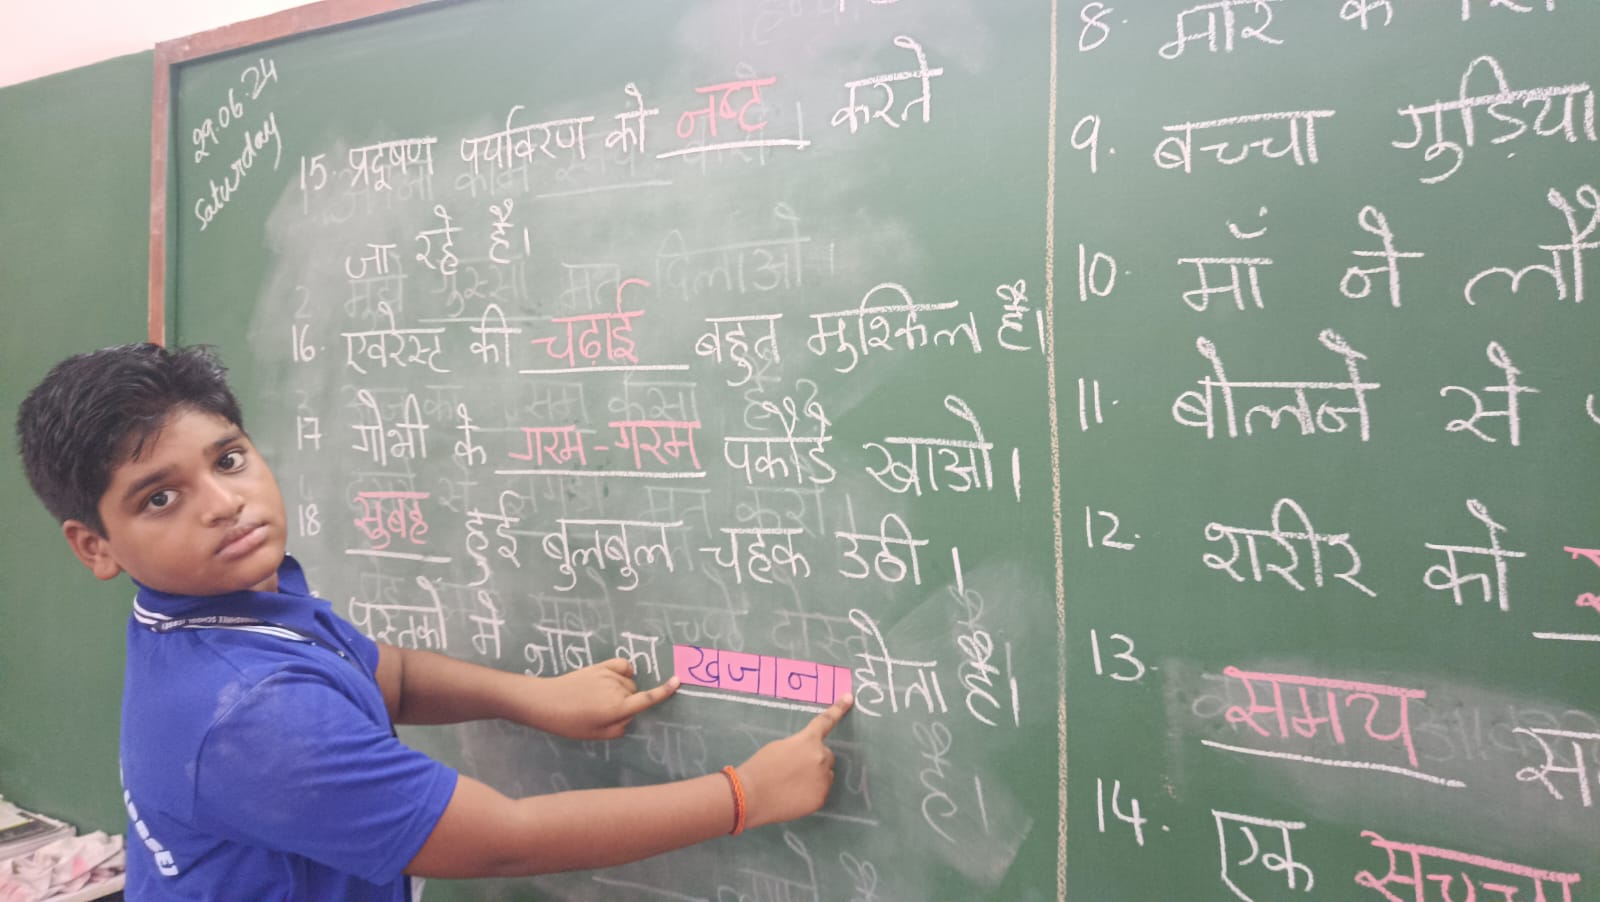 29.06.24
Saturday
15. प्रदूषण पर्यावरण को नष्ट करते
जा रहे हैं।
16. एवरेस्ट की चढ़ाई बहुत मुश्किल है।
17 गोभी के गरम-गरम पकौडे खाओ।
18 सुबह हुई बुलबुल चहक उठी।
पुस्तकों में ज्ञान का खजाना होता है।
8. मोर के
9. बच्चा गुड़िया
10. माँ ने
11. बोलने से
12. शरीर को
13. समय
14. एक सच्चा